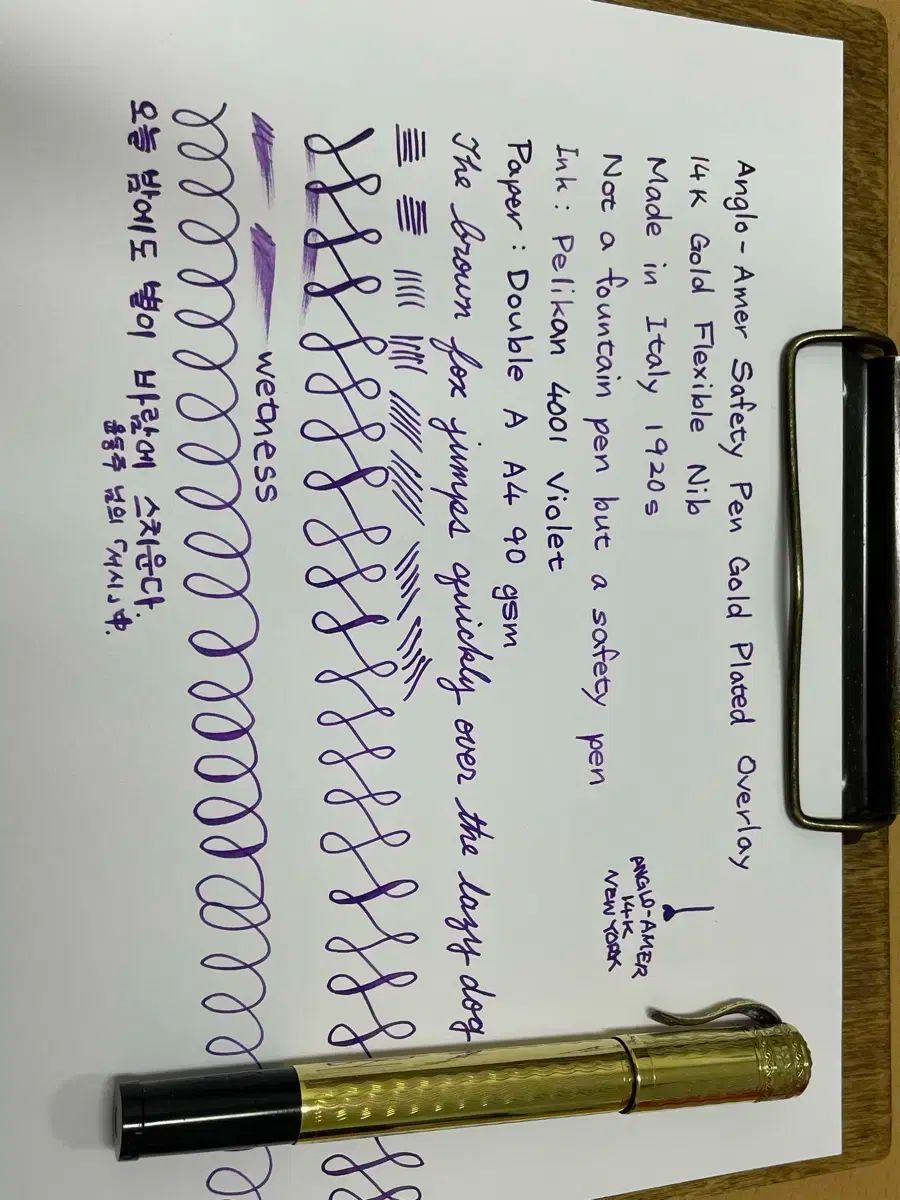 Anglo-Amer Safety Pen Gold Plated Overlay
14K Gold Flexible Nib
Made in Italy 1920s
Not a fountain pen but a safety pen
ANGLO-AMER
14K
NEW YORK
Ink: Pelikan 4001 Violet
Paper: Double A A4 90 gsm
The brown fox jumps quickly over the lazy dog
wetness
오늘 밤에도 별이 바람에 스치운다.
윤동주 님의 「서시」 中.